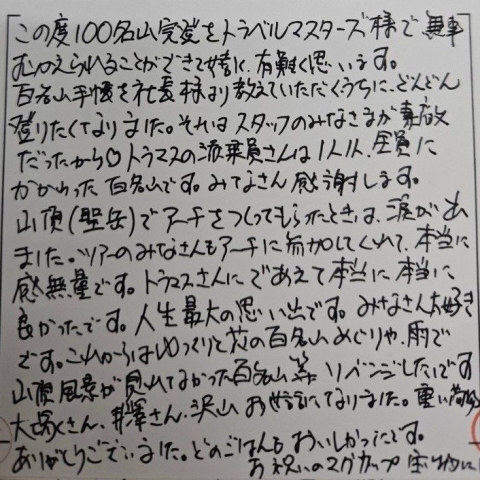 この度100名山完登をトラベルマスターズ様で無事
むかえられることができて嬉しく、有難く思います。
百名山手帳を社長様より教えていただくうちに、どんどん
登りたくなりました。それはスタッフのみなさまが素敵
だったから♡トラマスの添乗員さんは1人1人、全員に
かかわった百名山です。みなさん感謝します。
山頂(聖岳)でアーチをつくってもらったときは、涙がで
ました。ツアーのみなさんもアーチに参加してくれて、本当に
感無量です。トラマスさんにであえて本当に本当に
良かったです。人生最大の思い出です。みなさん大好き
です。これからはゆっくりと花の百名山めぐりや、雨で
山頂風景が見えてなかった百名山等リベンジしたいです
さん、井澤さん、沢山お世話になりました。重い荷物
ありがとうございました。どのごはんもおいしかったです。
お祝いのマグカップ宝物に